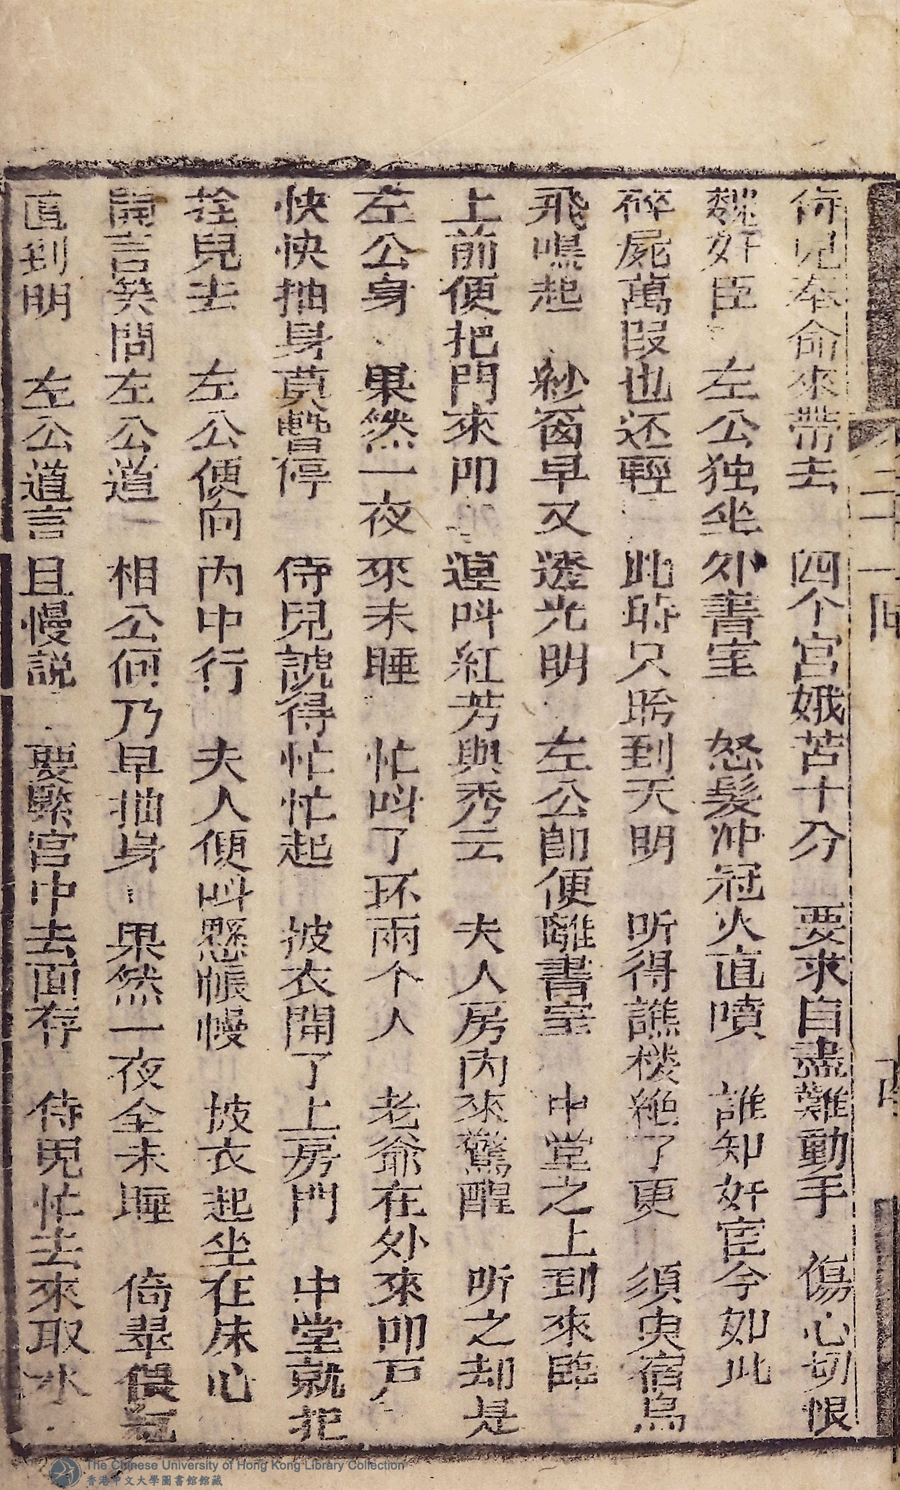 侍兒奉命來帶去　四个宮娥苦十分　要求自盡難動手　傷心切恨
魏奸臣　左公独坐外書室　怒髮冲冠火直噴　誰知奸宦今如此
碎屍萬段也还輕　此時只盼到天明　听得譙楼絕了更　須臾宿鳥
飛鳴起　紗窗早又透光明　左公即便離書室　中堂之上到來臨
上前便把門來叩　連叫紅芳與秀云　夫人房內來驚醒　听之却是
左公身　果然一夜來未睡　忙叫了环兩个人　老爺在外來叩戶
快快抽身莫暫停　侍兒諕得忙忙起　披衣開了上房門　中堂就把
拴兒去　左公便向內中行　夫人便叫懸帳幔　披衣起坐在床心
開言笑問左公道　相公何乃早抽身　果然一夜全未睡　倚翠偎
直到明　左公道言且慢説　要緊宮中去面存　侍兒忙去來取水
二十一回
The Chinese University of Hong Kong Library Collection
香港中文大學圖書館館藏